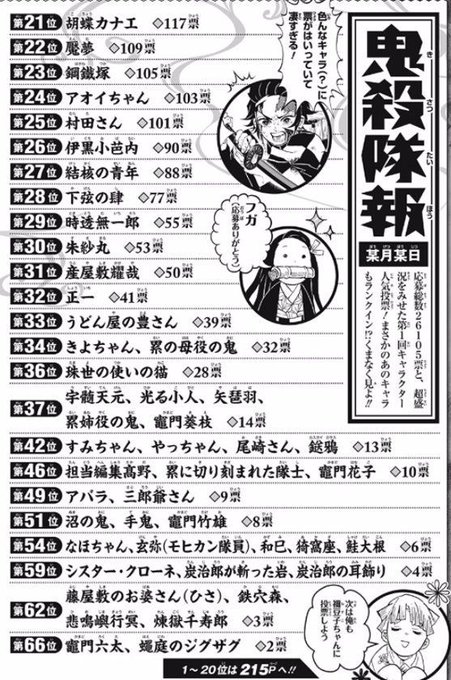 鬼殺隊報
某月某日
応募総数26105票と、超盛
況をみせた第1回キャラクター
人気投票!まさかのあのキャラ
もランクイン!?くまなく見よ!!
色んなキャラ(?)に
票がはいっていて
凄すぎる!
フガ
応募ありがとう
第21位 胡蝶カナエ ◇117票
第22位 魘夢 ◇109票
第23位 鋼鐵塚 ◇105票
第24位 アオイちゃん ◇103票
第25位 村田さん ◇101票
第26位 伊黒小芭内 ◇90票
第27位 結核の青年 ◇88票
第28位 下弦の肆 ◇77票
第29位 時透無一郎 ◇55票
第30位 朱紗丸 ◇53票
第31位 産屋敷耀哉 ◇50票
第32位 正一 ◇41票
第33位 うどん屋の豊さん ◇39票
第34位 きよちゃん、累の母役の鬼 ◇32票
第36位 珠世の使いの猫 ◇28票
第37位 宇髄天元、光る小人、矢琶羽、
累姉役の鬼、竈門葵枝 ◇14票
第42位 すみちゃん、やっちゃん、尾崎さん、鎹鴉 ◇13票
第46位 担当編集髙野、累に切り刻まれた隊士、竈門花子 ◇10票
第49位 アバラ、三郎爺さん ◇9票
第51位 沼の鬼、手鬼、竈門竹雄 ◇8票
第54位 なほちゃん、玄弥(モヒカン隊員)、和巳、猗窩座、鮭大根 ◇6票
第59位 シスター・クローネ、炭治郎が斬った岩、炭治郎の耳飾り ◇4票
第62位 藤屋敷のお婆さん(ひさ)、鉄穴森、
悲鳴嶼行冥、煉獄千寿郎 ◇3票
第66位 竈門六太、蠅庭のジグザグ ◇2票
次は俺も
禰豆子ちゃんに
投票しよう
1～20位は215Pへ!!